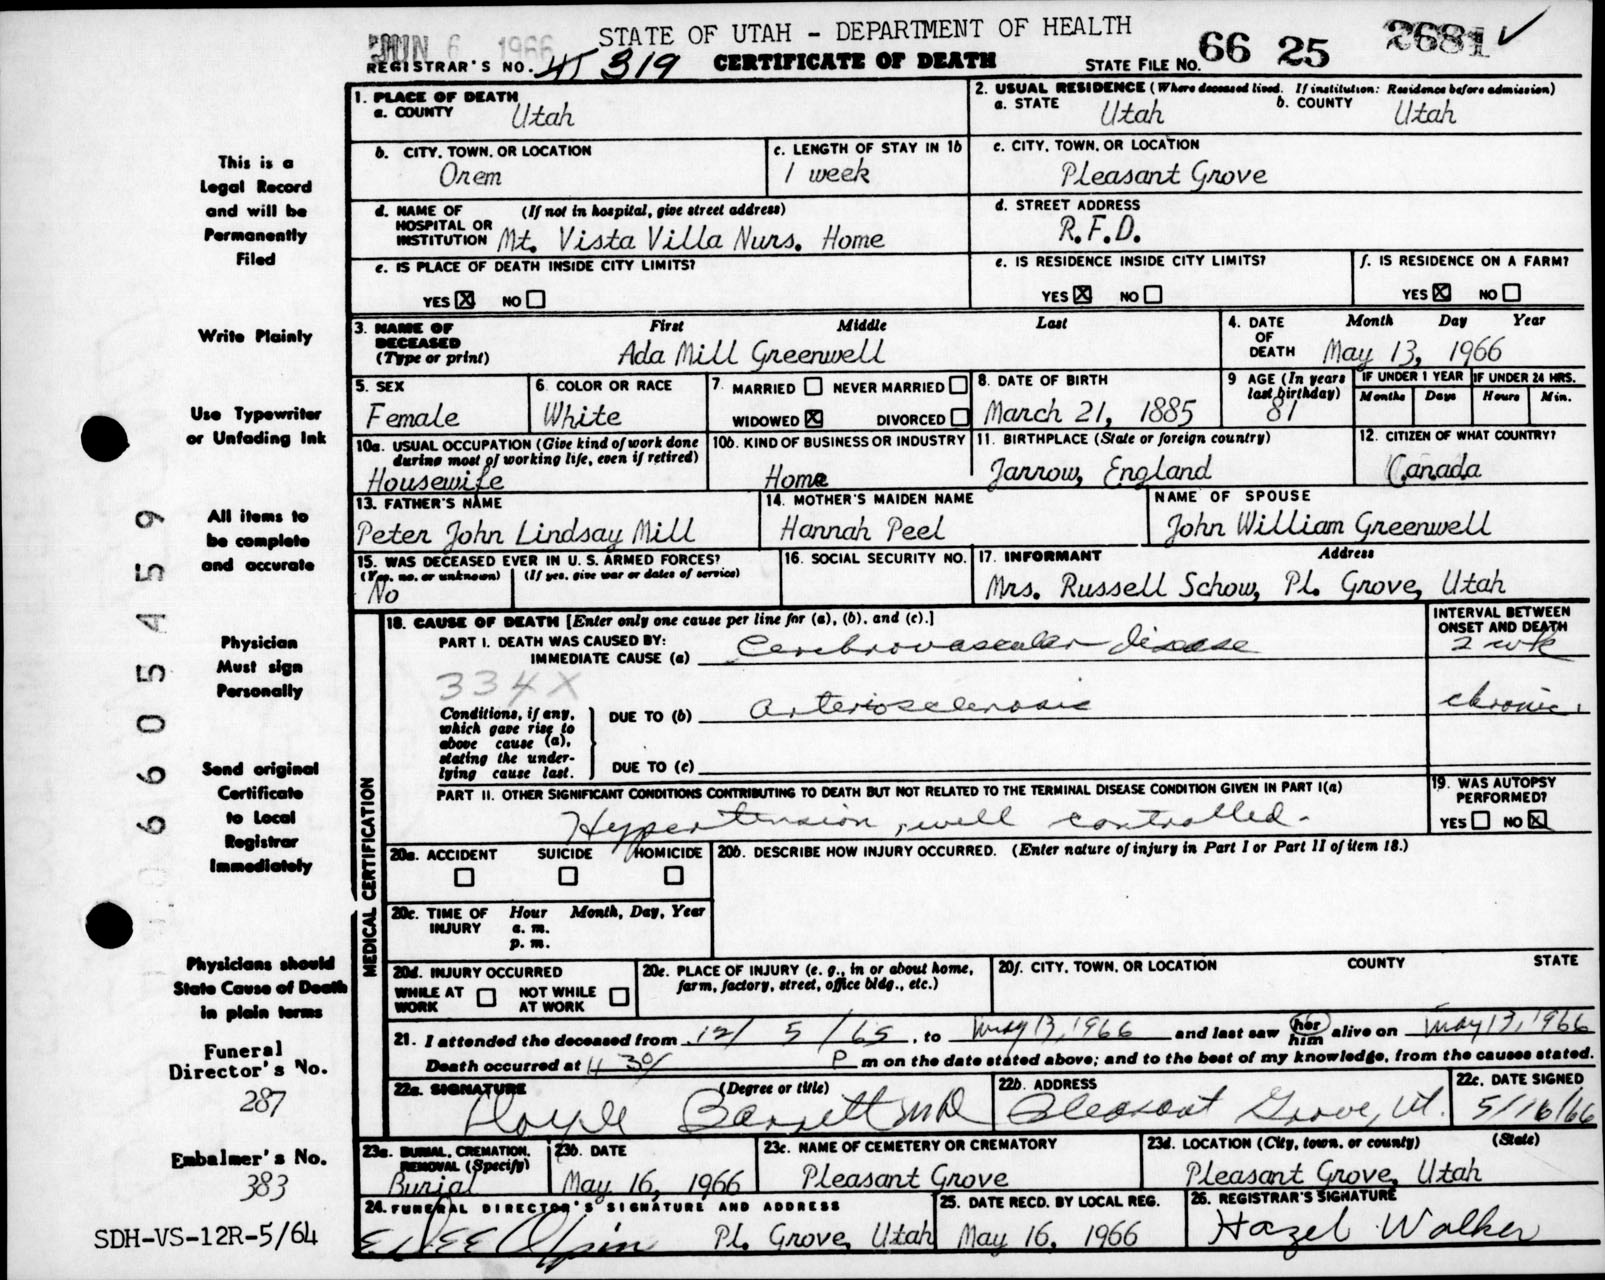 STATE OF UTAH - DEPARTMENT OF HEALTH
JUN 6 1966
REGISTRAR'S NO. 45 319 CERTIFICATE OF DEATH STATE FILE NO. 66 25 2681 ✓
1. PLACE OF DEATH
a. COUNTY Utah
2. USUAL RESIDENCE (Where deceased lived. If institution: Residence before admission)
a. STATE Utah b. COUNTY Utah
b. CITY, TOWN, OR LOCATION
Orem
c. LENGTH OF STAY IN 1b
1 week
c. CITY, TOWN, OR LOCATION
Pleasant Grove
d. NAME OF HOSPITAL OR INSTITUTION (If not in hospital, give street address)
Mt. Vista Villa Nurs. Home
d. STREET ADDRESS
R.F.D.
e. IS PLACE OF DEATH INSIDE CITY LIMITS?
YES ☒ NO ☐
e. IS RESIDENCE INSIDE CITY LIMITS?
YES ☒ NO ☐
f. IS RESIDENCE ON A FARM?
YES ☒ NO ☐
3. NAME OF DECEASED (Type or print) First Middle Last
Ada Mill Greenwell
4. DATE OF DEATH Month Day Year
May 13, 1966
5. SEX
Female
6. COLOR OR RACE
White
7. MARRIED ☐ NEVER MARRIED ☐
WIDOWED ☒ DIVORCED ☐
8. DATE OF BIRTH
March 21, 1885
9 AGE (In years last birthday)
81
IF UNDER 1 YEAR
Months Days
IF UNDER 24 HRS.
Hours Min.
10a. USUAL OCCUPATION (Give kind of work done during most of working life, even if retired)
Housewife
10b. KIND OF BUSINESS OR INDUSTRY
Home
11. BIRTHPLACE (State or foreign country)
Jarrow, England
12. CITIZEN OF WHAT COUNTRY?
Canada
13. FATHER'S NAME
Peter John Lindsay Mill
14. MOTHER'S MAIDEN NAME
Hannah Peel
NAME OF SPOUSE
John William Greenwell
15. WAS DECEASED EVER IN U.S. ARMED FORCES?
(Yes, no, or unknown) (If yes, give war or dates of service)
No
16. SOCIAL SECURITY NO.
17. INFORMANT Address
Mrs. Russell Schow, Pl. Grove, Utah
18. CAUSE OF DEATH [Enter only one cause per line for (a), (b), and (c).]
INTERVAL BETWEEN ONSET AND DEATH
PART I. DEATH WAS CAUSED BY:
IMMEDIATE CAUSE (a) Cerebrovascular disease 2 wk
334X
Conditions, if any, which gave rise to above cause (a), stating the underlying cause last.
DUE TO (b) arteriosclerosis chronic
DUE TO (c)
PART II. OTHER SIGNIFICANT CONDITIONS CONTRIBUTING TO DEATH BUT NOT RELATED TO THE TERMINAL DISEASE CONDITION GIVEN IN PART I(a)
Hypertension, well controlled.
19. WAS AUTOPSY PERFORMED?
YES ☐ NO ☒
20a. ACCIDENT SUICIDE HOMICIDE
☐ ☐ ☐
20b. DESCRIBE HOW INJURY OCCURRED. (Enter nature of injury in Part I or Part II of item 18.)
20c. TIME OF INJURY Hour Month, Day, Year
a. m.
p. m.
20d. INJURY OCCURRED
WHILE AT WORK ☐ NOT WHILE AT WORK ☐
20e. PLACE OF INJURY (e. g., in or about home, farm, factory, street, office bldg., etc.)
20f. CITY, TOWN, OR LOCATION COUNTY STATE
21. I attended the deceased from 12/ 5 /65, to May 13, 1966 and last saw her him alive on May 13, 1966
Death occurred at 4 30 P m on the date stated above; and to the best of my knowledge, from the causes stated.
22a. SIGNATURE (Degree or title)
Barrett MD
22b. ADDRESS
Pleasant Grove, Ut.
22c. DATE SIGNED
5/16/66
23a. BURIAL, CREMATION, REMOVAL (Specify)
Burial
23b. DATE
May 16, 1966
23c. NAME OF CEMETERY OR CREMATORY
Pleasant Grove
23d. LOCATION (City, town, or county) (State)
Pleasant Grove, Utah
24. FUNERAL DIRECTOR'S SIGNATURE AND ADDRESS
Olpin Pl. Grove, Utah
25. DATE RECD. BY LOCAL REG.
May 16, 1966
26. REGISTRAR'S SIGNATURE
Hazel Walker
MEDICAL CERTIFICATION
This is a
Legal Record
and will be
Permanently
Filed
Write Plainly
Use Typewriter
or Unfading Ink
All items to
be complete
and accurate
Physician
Must sign
Personally
Send original
Certificate
to Local
Registrar
Immediately
Physicians should
State Cause of Death
in plain terms
Funeral
Director's No.
287
Embalmer's No.
383
SDH-VS-12R-5/64
6605459